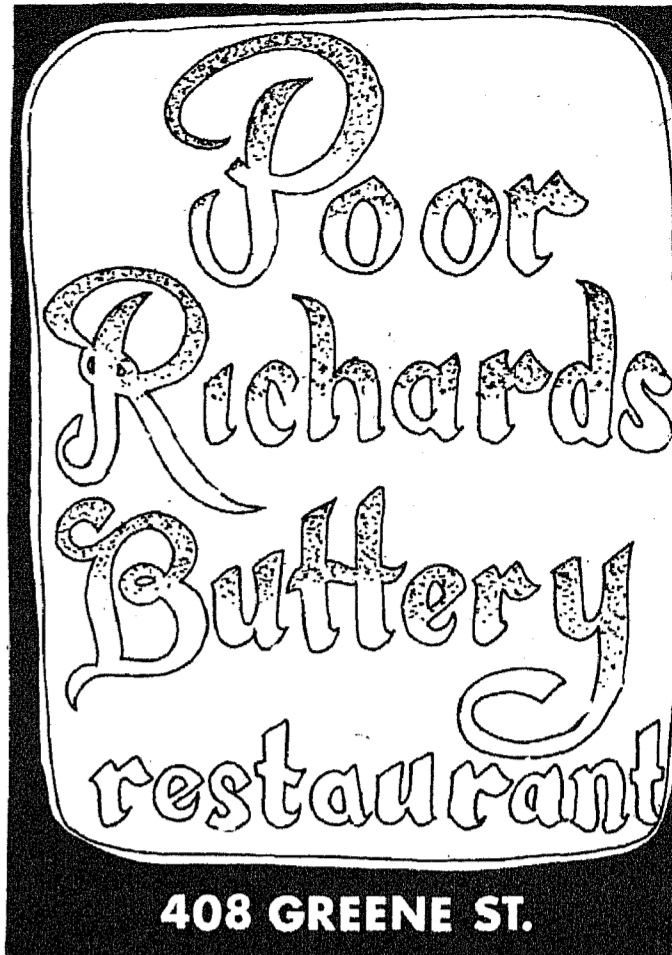 Poor
Richards
Buttery
restaurant
408 GREENE ST.